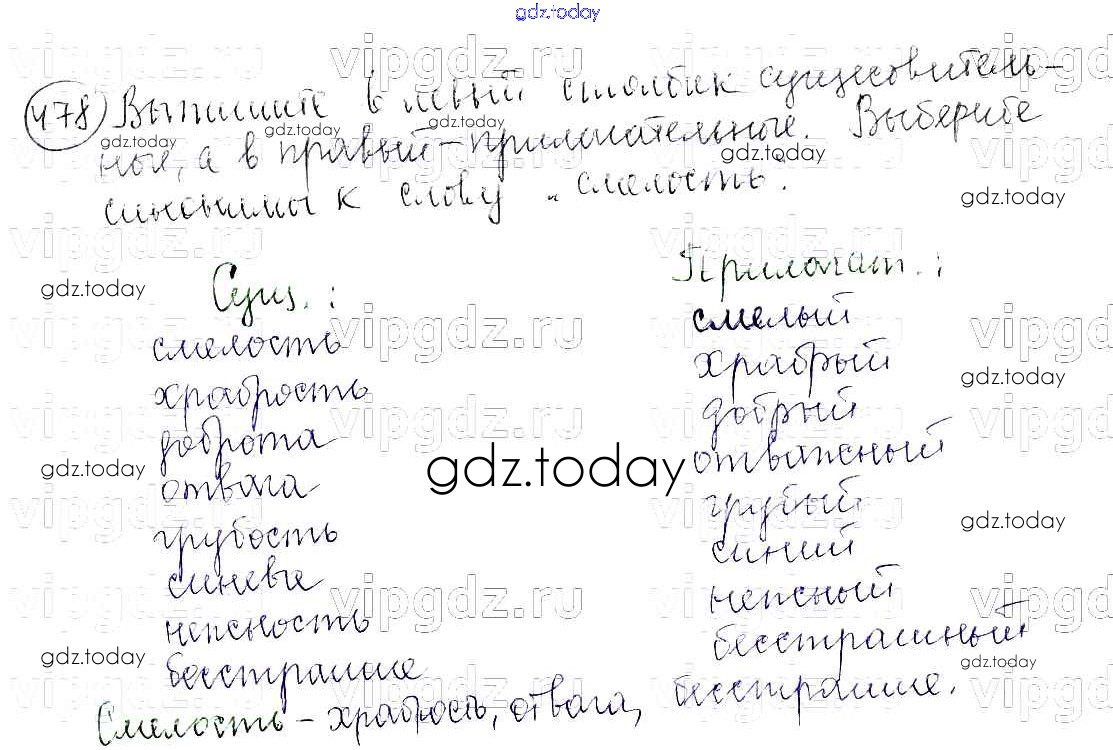 gdz.today
478 Выпишите в левый столбик существитель-
ные, а в правый - прилагательные. Выберите
синонимы к слову „смелость.
Сущ.:
смелость
храбрость
доброта
отвага
грубость
синева
нежность
бесстрашие
Прилагат.:
смелый
храбрый
добрый
отважный
грубый
синий
нежный
бесстрашный
Смелость - храбрость, отвага, бесстрашие.
vipgdz.ru
gdz.today